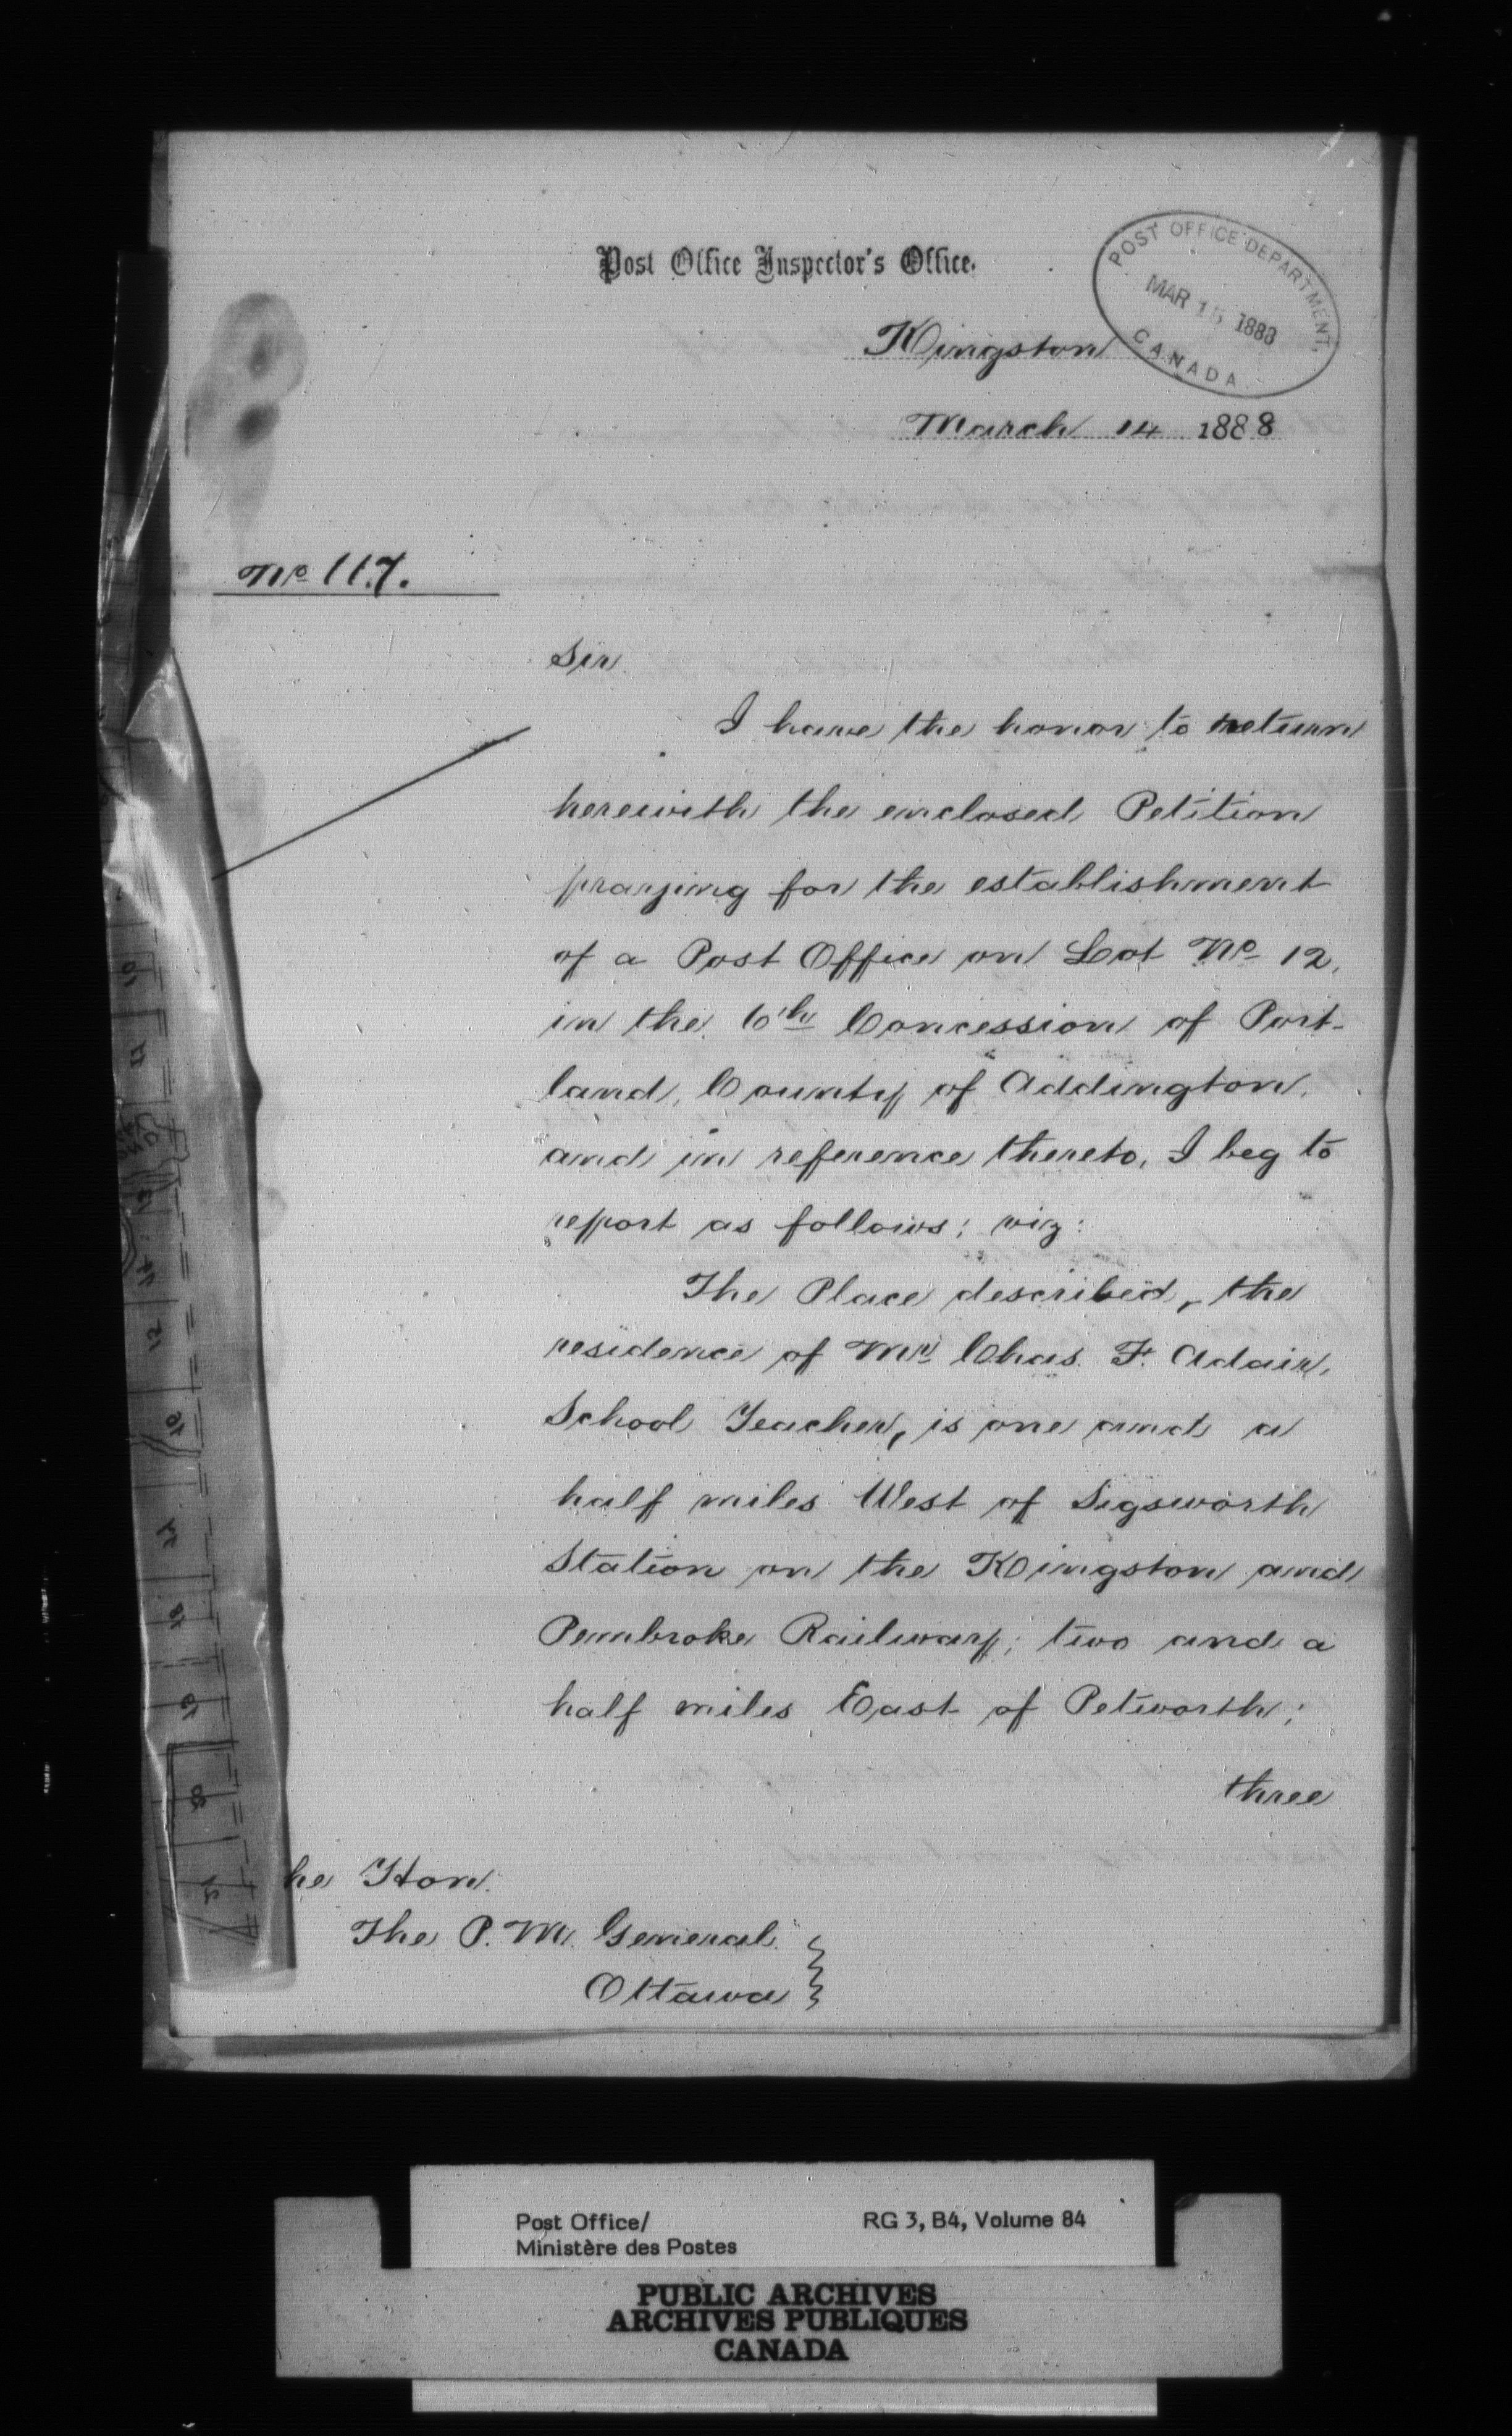 Post Office Inspector's Office.
POST OFFICE DEPARTMENT,
MAR 15 1888
CANADA
Kingston
March 14 1888
No 117.
Sir
I have the honor to return
herewith the enclosed Petition
praying for the establishment
of a Post Office on Lot No 12,
in the 10th Concession of Port-
land, County of Addington,
and in reference thereto, I beg to
report as follows; viz:
The Place described, the
residence of Mr Chas. F. Adair,
School Teacher, is one and a
half miles West of Sigsworth
Station on the Kingston and
Pembroke Railway; two and a
half miles East of Petworth;
three
he Hon.
The P. M. General.
Ottawa
Post Office/
Ministère des Postes
RG 3, B4, Volume 84
PUBLIC ARCHIVES
ARCHIVES PUBLIQUES
CANADA